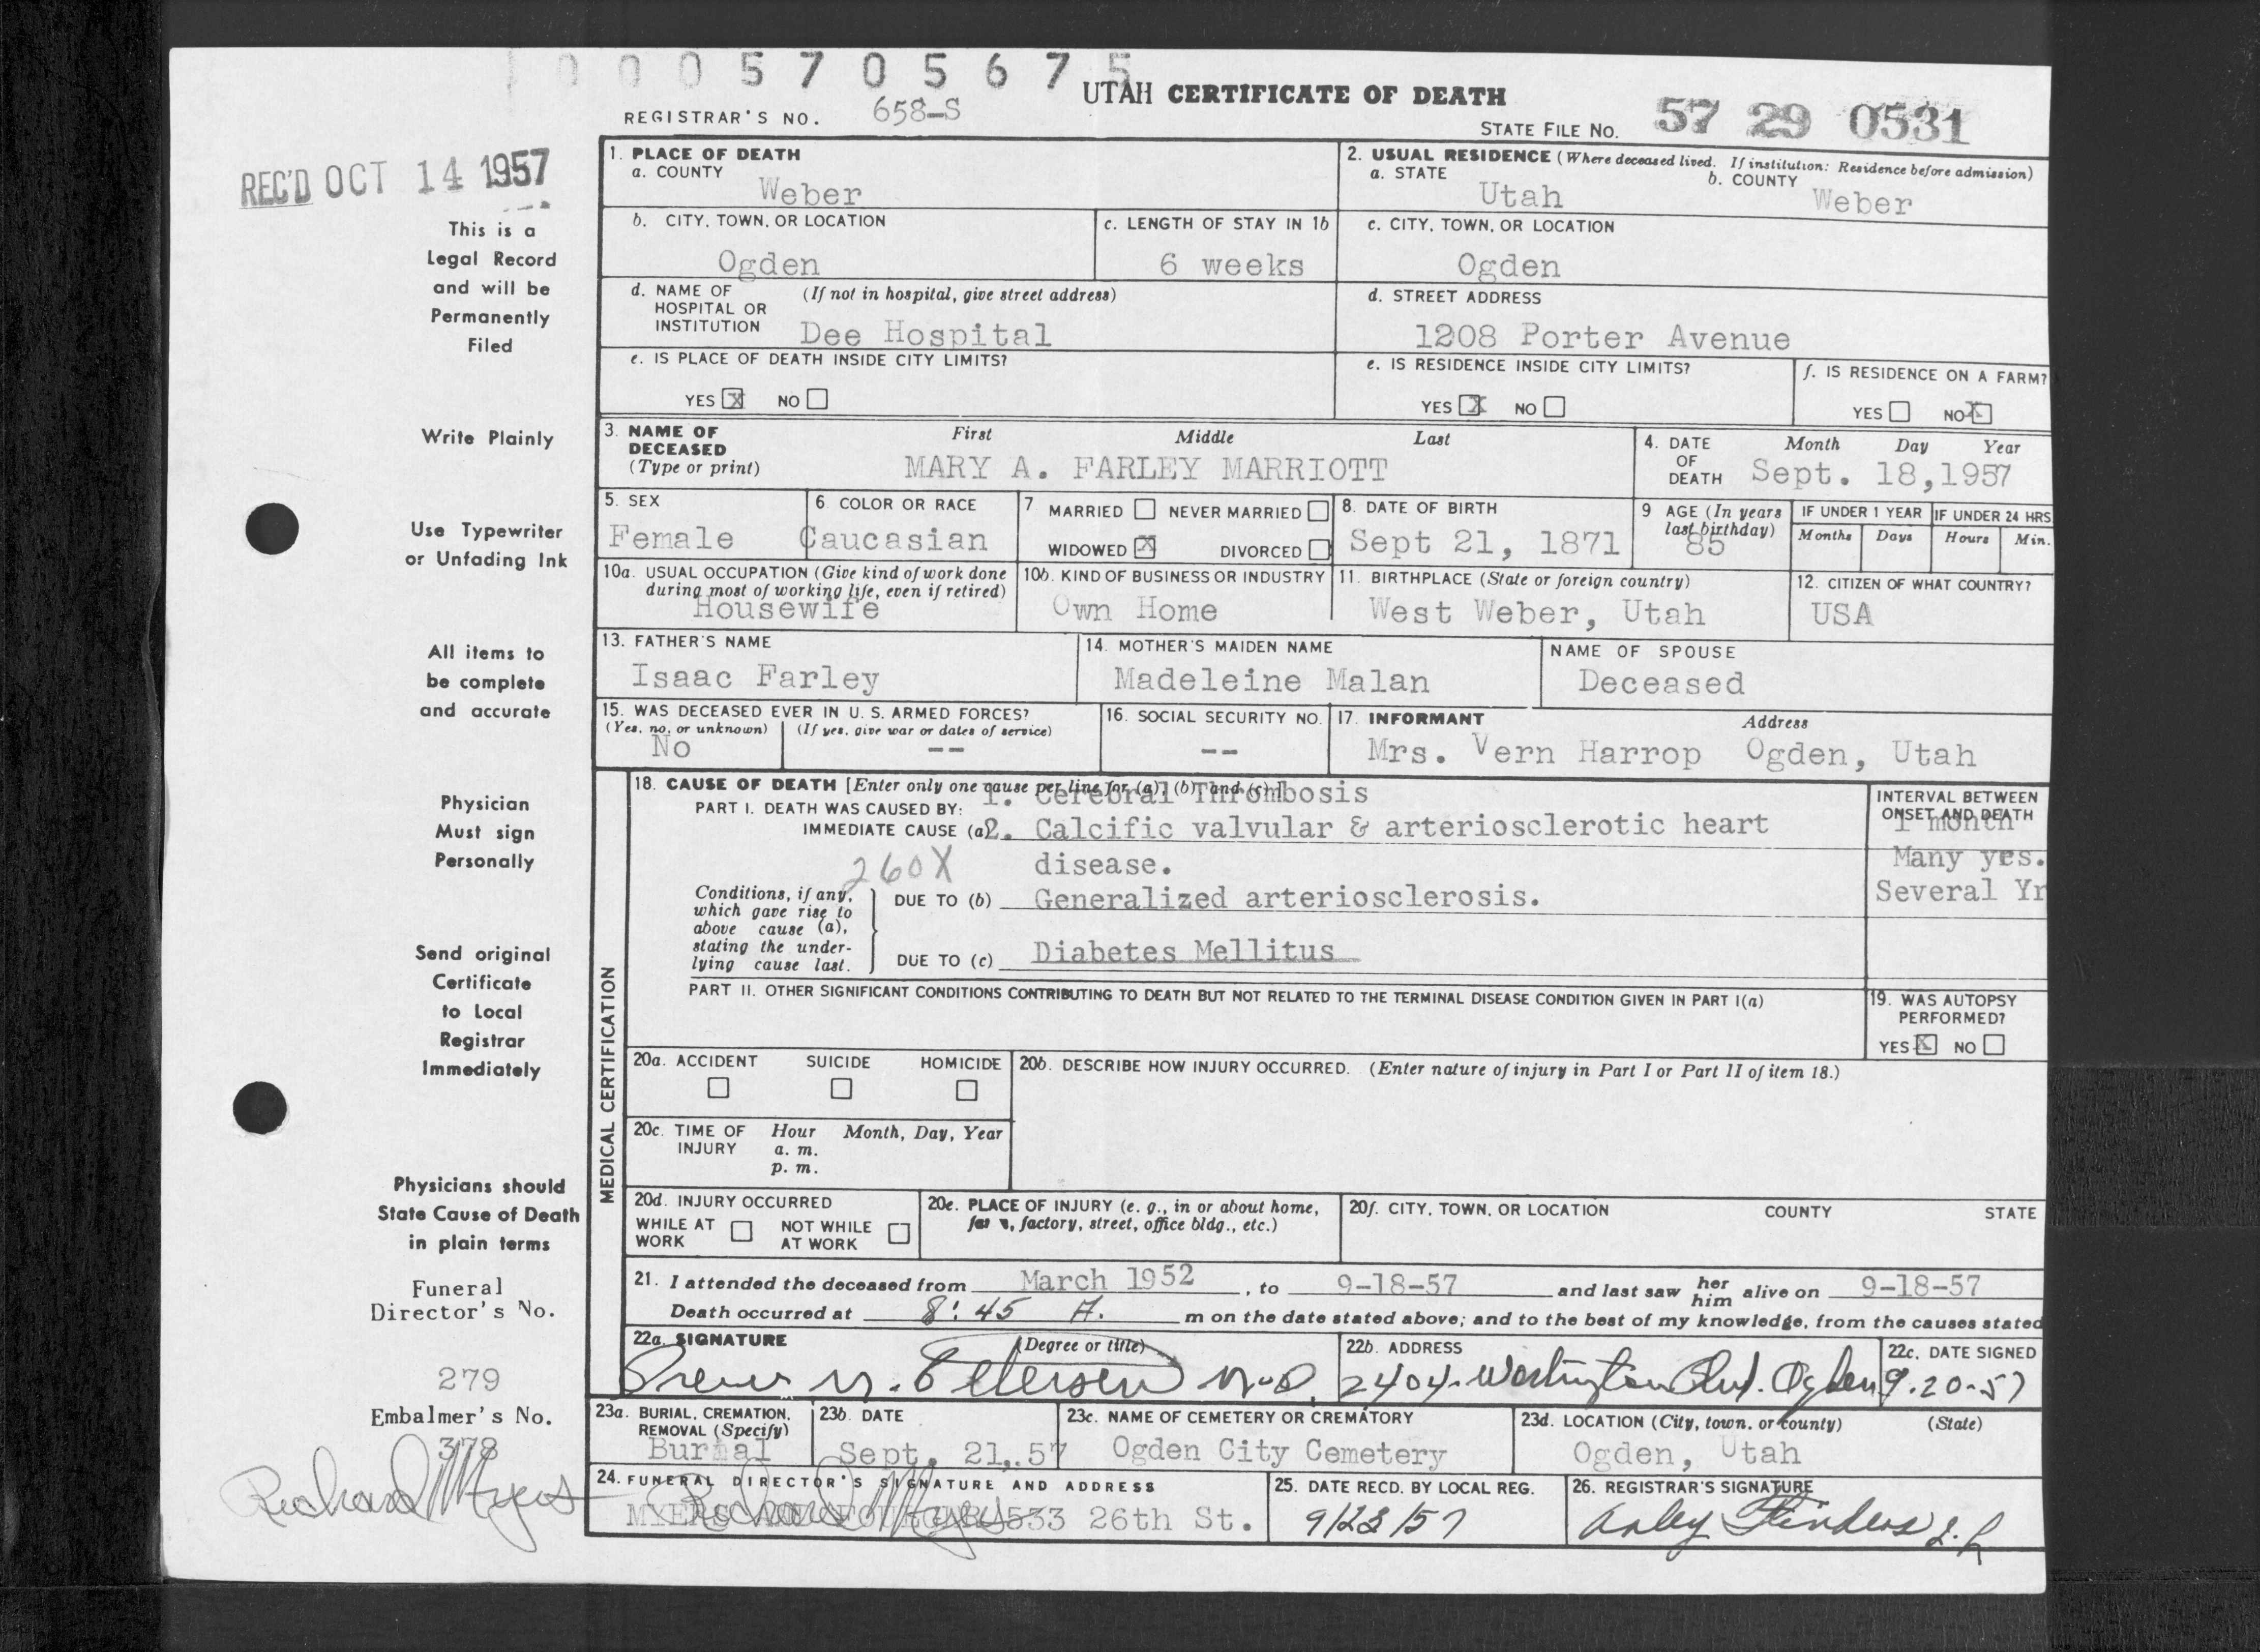 0005705675
UTAH CERTIFICATE OF DEATH
REGISTRAR'S NO. 658-S
STATE FILE NO. 57 29 0531
REC'D OCT 14 1957
This is a
Legal Record
and will be
Permanently
Filed
Write Plainly
Use Typewriter
or Unfading Ink
All items to
be complete
and accurate
Physician
Must sign
Personally
Send original
Certificate
to Local
Registrar
Immediately
Physicians should
State Cause of Death
in plain terms
Funeral
Director's No.
279
Embalmer's No.
378
Richard Myers
1. PLACE OF DEATH
a. COUNTY
Weber
2. USUAL RESIDENCE (Where deceased lived. If institution: Residence before admission)
a. STATE
Utah
b. COUNTY
Weber
b. CITY, TOWN, OR LOCATION
Ogden
c. LENGTH OF STAY IN 1b
6 weeks
c. CITY, TOWN, OR LOCATION
Ogden
d. NAME OF HOSPITAL OR INSTITUTION
(If not in hospital, give street address)
Dee Hospital
d. STREET ADDRESS
1208 Porter Avenue
e. IS PLACE OF DEATH INSIDE CITY LIMITS?
YES X NO
e. IS RESIDENCE INSIDE CITY LIMITS?
YES X NO
f. IS RESIDENCE ON A FARM?
YES NO X
3. NAME OF DECEASED
(Type or print)
First Middle Last
MARY A. FARLEY MARRIOTT
4. DATE OF DEATH
Month Day Year
Sept. 18,1957
5. SEX
Female
6. COLOR OR RACE
Caucasian
7 MARRIED NEVER MARRIED
WIDOWED X DIVORCED
8. DATE OF BIRTH
Sept 21, 1871
9 AGE (In years last birthday)
85
IF UNDER 1 YEAR
Months Days
IF UNDER 24 HRS
Hours Min.
10a. USUAL OCCUPATION (Give kind of work done during most of working life, even if retired)
Housewife
10b. KIND OF BUSINESS OR INDUSTRY
Own Home
11. BIRTHPLACE (State or foreign country)
West Weber, Utah
12. CITIZEN OF WHAT COUNTRY?
USA
13. FATHER'S NAME
Isaac Farley
14. MOTHER'S MAIDEN NAME
Madeleine Malan
NAME OF SPOUSE
Deceased
15. WAS DECEASED EVER IN U. S. ARMED FORCES?
(Yes, no, or unknown) (If yes, give war or dates of service)
No --
16. SOCIAL SECURITY NO.
--
17. INFORMANT Address
Mrs. Vern Harrop Ogden, Utah
MEDICAL CERTIFICATION
18. CAUSE OF DEATH [Enter only one cause per line for (a), (b), and (c).]
1. Cerebral Thrombosis
PART I. DEATH WAS CAUSED BY:
IMMEDIATE CAUSE (a) 2. Calcific valvular & arteriosclerotic heart
disease.
260X
Conditions, if any,
which gave rise to
above cause (a),
stating the under-
lying cause last.
DUE TO (b) Generalized arteriosclerosis.
DUE TO (c) Diabetes Mellitus
INTERVAL BETWEEN
ONSET AND DEATH
1 month
Many yrs.
Several Yr
PART II. OTHER SIGNIFICANT CONDITIONS CONTRIBUTING TO DEATH BUT NOT RELATED TO THE TERMINAL DISEASE CONDITION GIVEN IN PART I(a)
19. WAS AUTOPSY PERFORMED?
YES X NO
20a. ACCIDENT SUICIDE HOMICIDE
20b. DESCRIBE HOW INJURY OCCURRED. (Enter nature of injury in Part I or Part II of item 18.)
20c. TIME OF INJURY
Hour Month, Day, Year
a. m.
p. m.
20d. INJURY OCCURRED
WHILE AT WORK NOT WHILE AT WORK
20e. PLACE OF INJURY (e. g., in or about home, factory, street, office bldg., etc.)
20f. CITY, TOWN, OR LOCATION COUNTY STATE
21. I attended the deceased from March 1952, to 9-18-57 and last saw her him alive on 9-18-57
Death occurred at 8:45 A. m on the date stated above; and to the best of my knowledge, from the causes stated
22a. SIGNATURE (Degree or title)
Petersen M.D.
22b. ADDRESS
2404 Washington Blvd. Ogden
22c. DATE SIGNED
9-20-57
23a. BURIAL, CREMATION, REMOVAL (Specify)
Burial
23b. DATE
Sept. 21, 57
23c. NAME OF CEMETERY OR CREMATORY
Ogden City Cemetery
23d. LOCATION (City, town, or county) (State)
Ogden, Utah
24. FUNERAL DIRECTOR'S SIGNATURE AND ADDRESS
Richard Myers
MYERS 533 26th St.
25. DATE RECD. BY LOCAL REG.
9/23/57
26. REGISTRAR'S SIGNATURE
Flinders